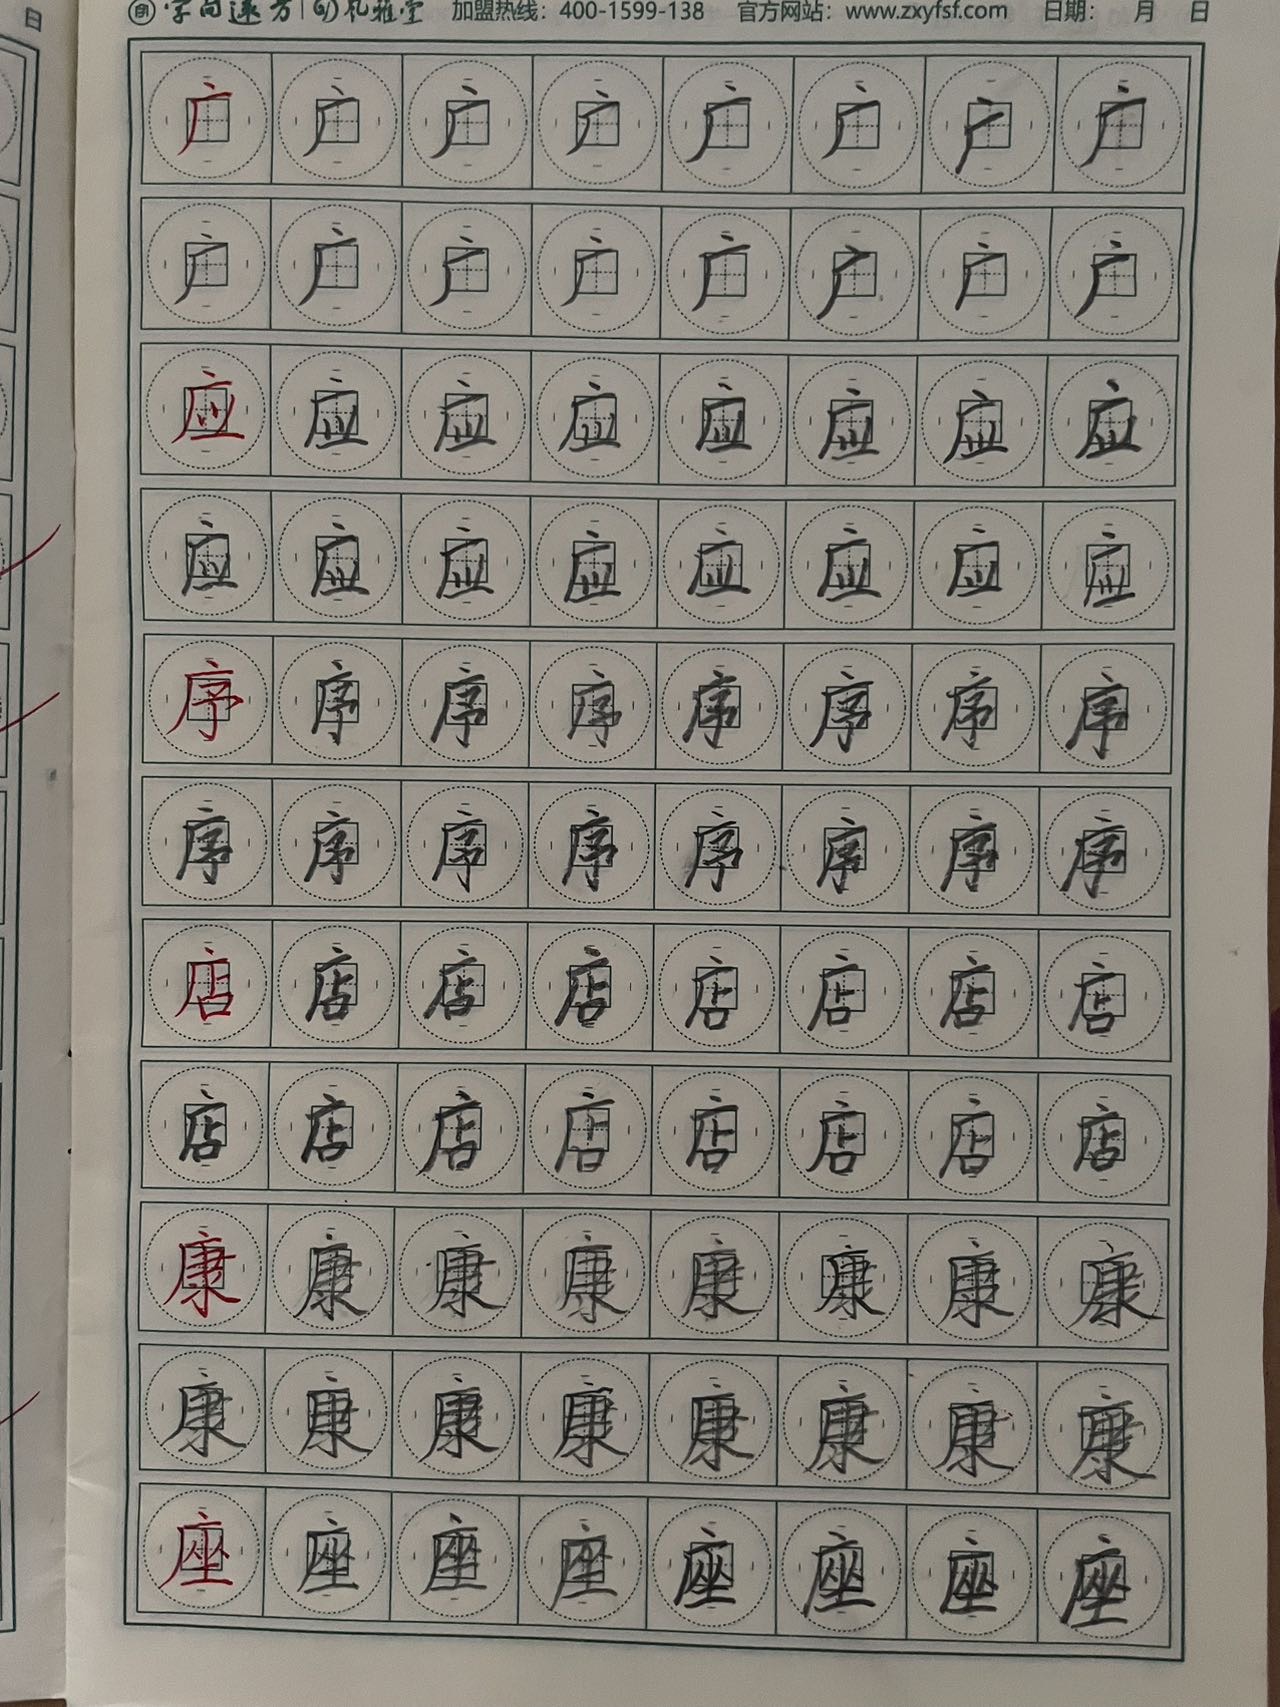 日 学问速方 孔雅堂 加盟热线：400-1599-138 官方网站：www.zxyfsf.com 日期： 月 日
广 广 广 广 广 广 广 广
广 广 广 广 广 广 广 广
应 应 应 应 应 应 应 应
应 应 应 应 应 应 应 应
序 序 序 序 序 序 序 序
序 序 序 序 序 序 序 序
店 店 店 店 店 店 店 店
店 店 店 店 店 店 店 店
康 康 康 康 康 康 康 康
康 康 康 康 康 康 康 康
座 座 座 座 座 座 座 座